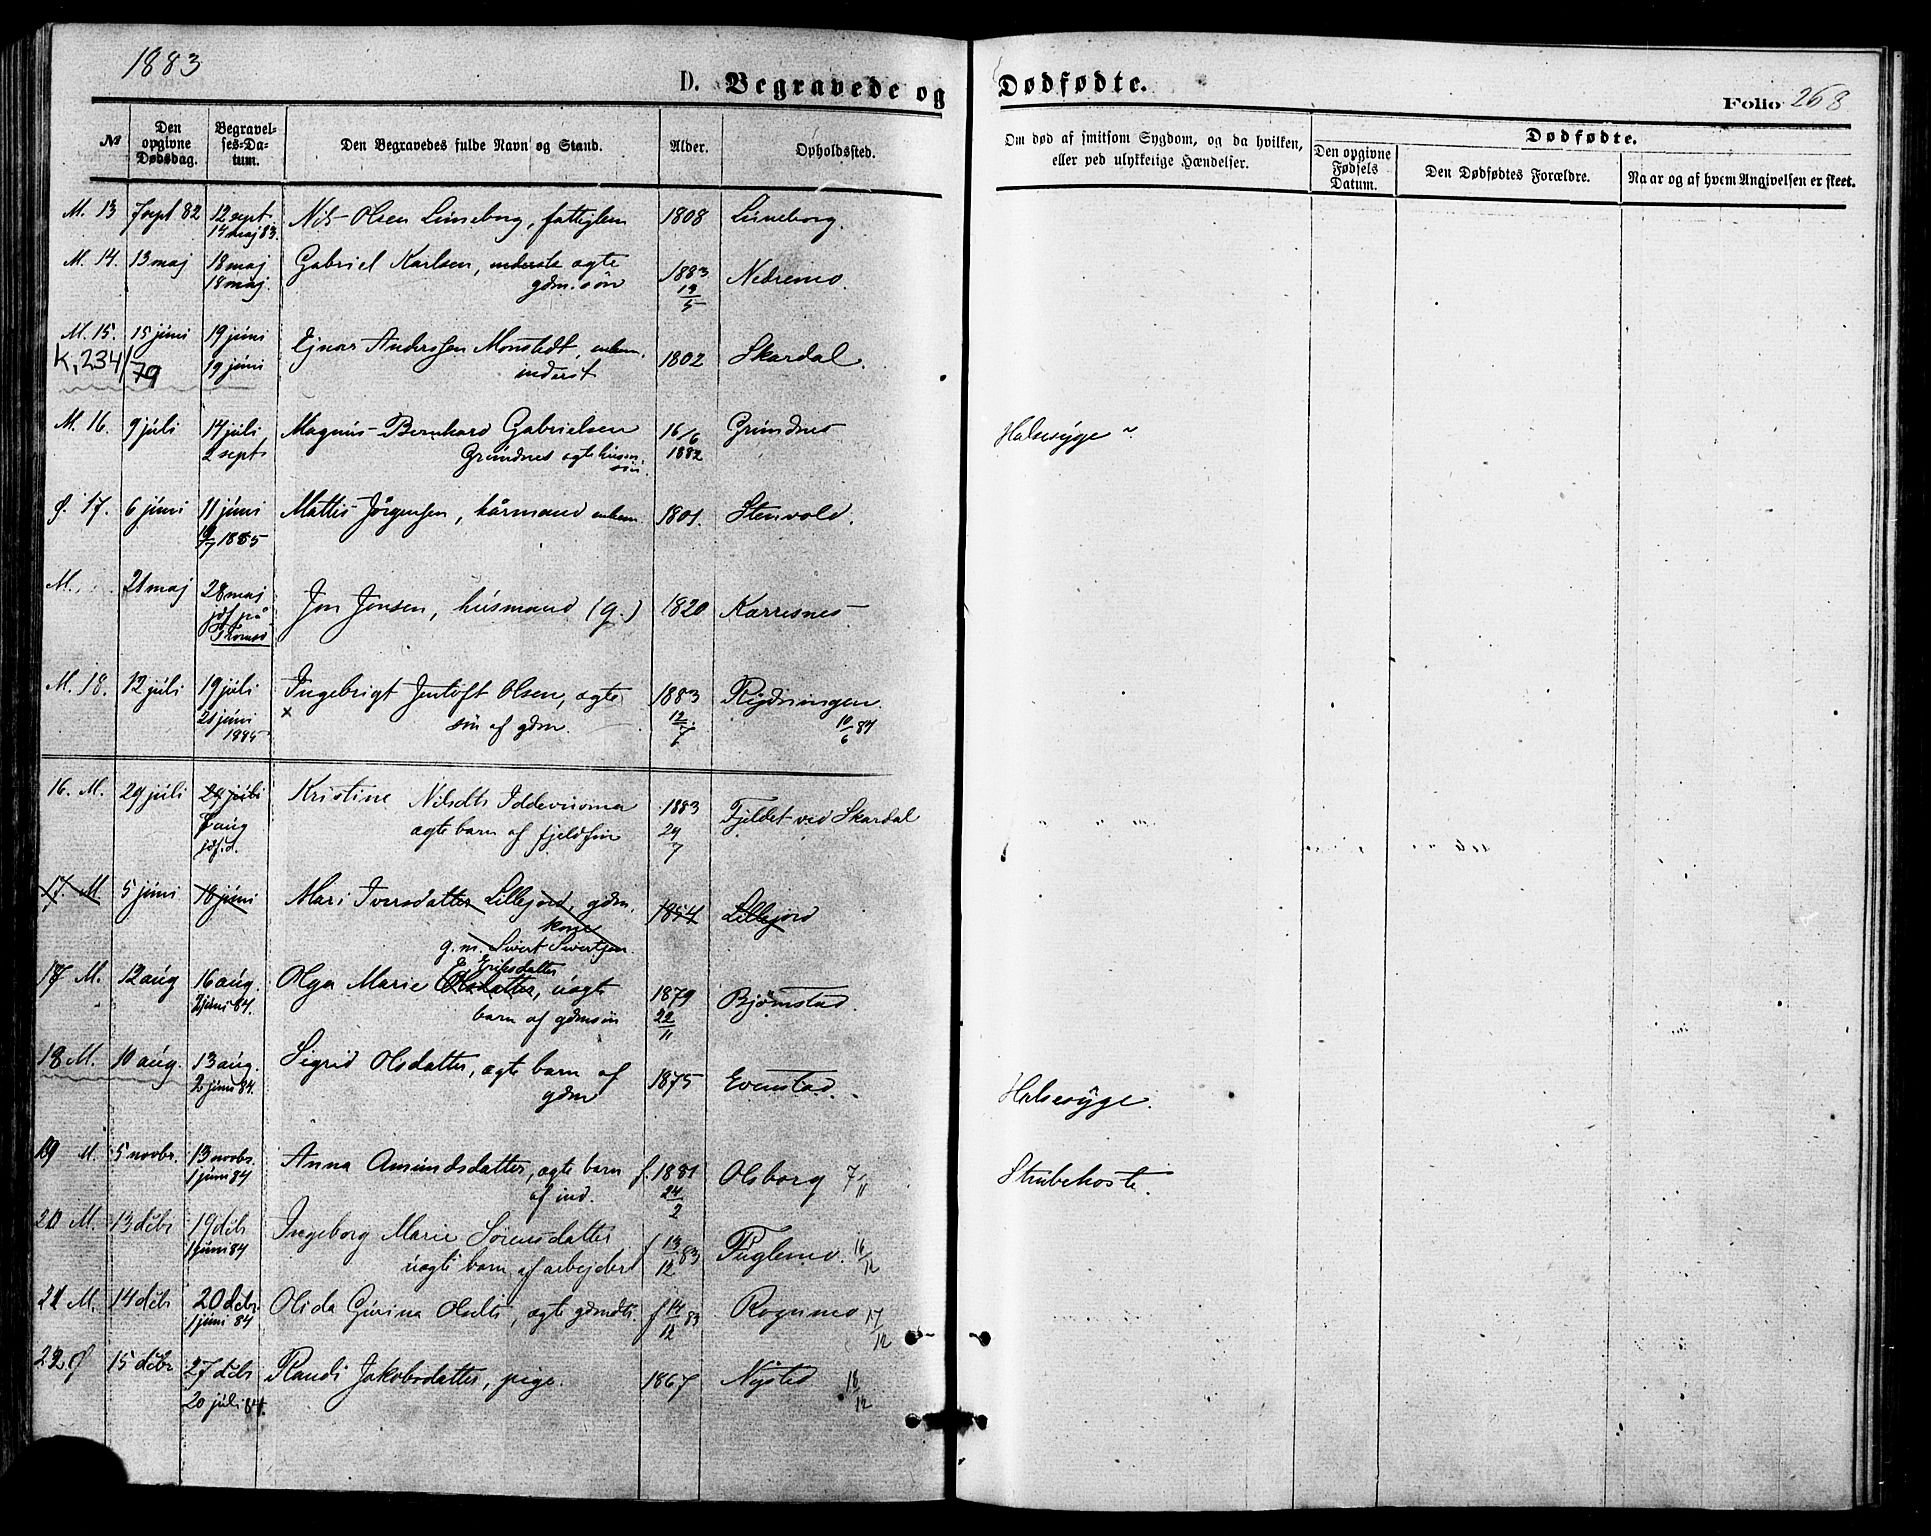 1883
D. Begravede og Dødfødte.
Folio 268
№
Den opgivne Dødsdag.
Begravel-
ses-Da-
tum.
Den Begravedes fulde Navn og Stand.
Alder.
Opholdssted.
Om død af smitsom Sygdom, og da hvilken,
eller ved ulykkelige Hændelser.
Dødfødte.
Den opgivne Fødsels Datum.
Den Dødfødtes Forældre.
Naar og af hvem Angivelsen er skeet.
M. 13 7 sept 82 12 sept Nils Olsen Luneborg, fattiglem 1808 Luneborg.
14 maj 83.
M. 14. 13 maj 18 maj Gabriel Karlsen, inderste ægte 1883 Nedremo.
18 maj. gdm. søn 13/5
M. 15. 15 juni 19 juni Ejnar Anderssen Monstedt, enkem. 1802 Skardal.
K, 234/79 19 juni inderst
M. 16. 9 juli 14 juli Magnus Bernhard Gabrielsen 16/6 Grundnes Halsesyge
2 sept Grundnes ægte husm 1882
søn.
Ø. 17. 6 juni 11 juni Mattis Jørgensen, kårmand enkem. 1801. Stenvold.
1885
M. 21 maj 28 maj Jon Jonsen, husmand (g.) 1820 Karresnes
jdf. på
Tromsø
M. 18. 12 juli 19 juli Ingebrigt Jentoft Olsen, ægte 1883 Rydningen.
21 juni x søn af gdm. 12/7 10/6 84
1885
16. M. 24 juli 24 juli Kristine Nilsdtr Iddevuoma 1883 Fjeldet ved Skardal
7 aug ægte barn af fjeldfin 24/7
jdf. d.
17. M 5 juni 18 juni Mari Iversdatter Lillejord, gdm. 1854 Lillejord
kone
g. m. Sivert Sivertsen
Eriksdatter
17 M. 12 aug 16 aug. Olga Marie Olsdatter, uægte 1879 Bjørnstad
2 juni 84. barn af gdmsøn 22/11
18 M. 10 aug. 13 aug. Sigrid Olsdatter, ægte barn af 1875 Evenstad. Halsesyge.
2 juni 84. gdm
19 M. 5 novbr. 13 novbr. Anna Amundsdatter, ægte barn f. 1881 Olsborg 7/11 Strubehoste.
1 juni 84 af ind. 24/2
20 M. 13 debr 19 debr Ingeborg Marie Sørensdatter f 13/12 83 Fuglemo. 16/12
1 juni 84 uægte barn af arbejder
21 M. 14 debr 20 debr. Olida Gurina Olsdtr, ægte gdmdtr. f 14/12 83 Rognmo 17/12
1 juni 84
22 Ø 15 debr 27 debr Randi Jakobsdatter, pige. 1867 Nysted 18/12
20 juli 84.